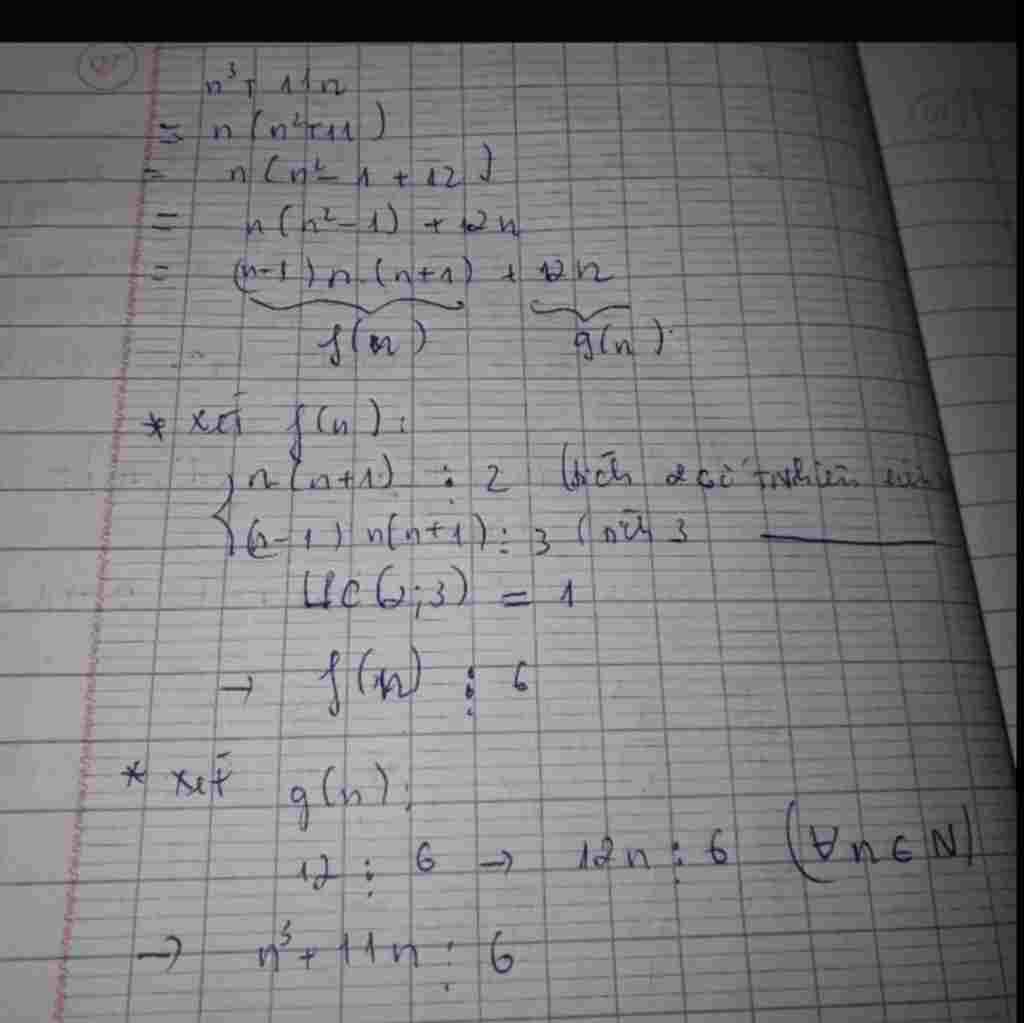 n³ + 11n
= n(n²+11)
= n(n² - 1 + 12)
= n(n² - 1) + 12n
= (n-1) n (n+1) + 12n
f(n) g(n)
* xét f(n):
n(n+1) ⋮ 2 (tích 2 số tự nhiên
(n-1) n(n+1) ⋮ 3 (tích 3
ƯC(2;3) = 1
→ f(n) ⋮ 6
* xét g(n):
12 ⋮ 6 → 12n ⋮ 6 (∀n ∈ N)
→ n³ + 11n ⋮ 6